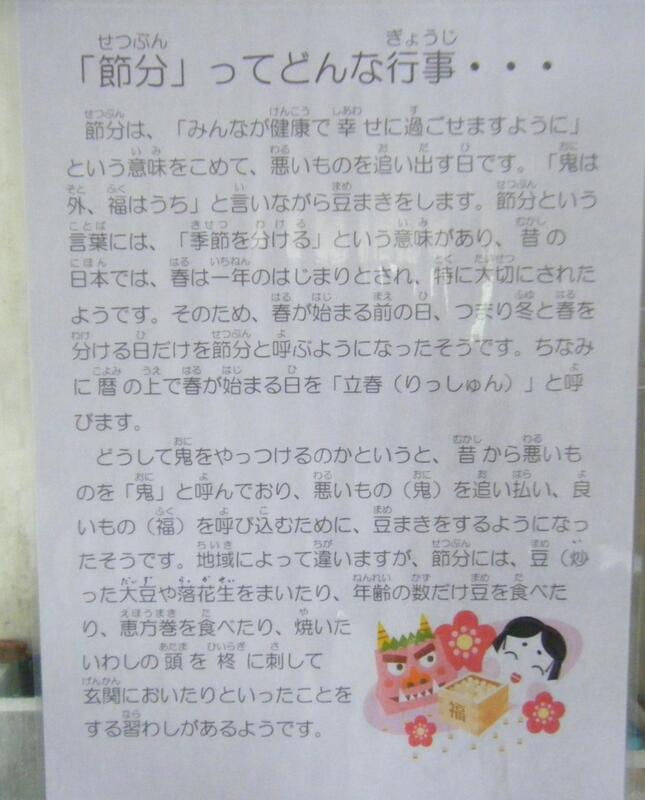 「節分」ってどんな行事・・・
節分は、「みんなが健康で幸せに過ごせますように」
という意味をこめて、悪いものを追い出す日です。「鬼は
外、福はうち」と言いながら豆まきをします。節分という
言葉には、「季節を分ける」という意味があり、昔の
日本では、春は一年のはじまりとされ、特に大切にされた
ようです。そのため、春が始まる前の日、つまり冬と春を
分ける日だけを節分と呼ぶようになったそうです。ちなみ
に暦の上で春が始まる日を「立春（りっしゅん）」と呼
びます。
どうして鬼をやっつけるのかというと、昔から悪いも
のを「鬼」と呼んでおり、悪いもの（鬼）を追い払い、良
いもの（福）を呼び込むために、豆まきをするようになっ
たそうです。地域によって違いますが、節分には、豆（炒
った大豆や落花生をまいたり、年齢の数だけ豆を食べた
り、恵方巻を食べたり、焼いた
いわしの頭を柊に刺して
玄関においたりといったことを
する習わしがあるようです。
福